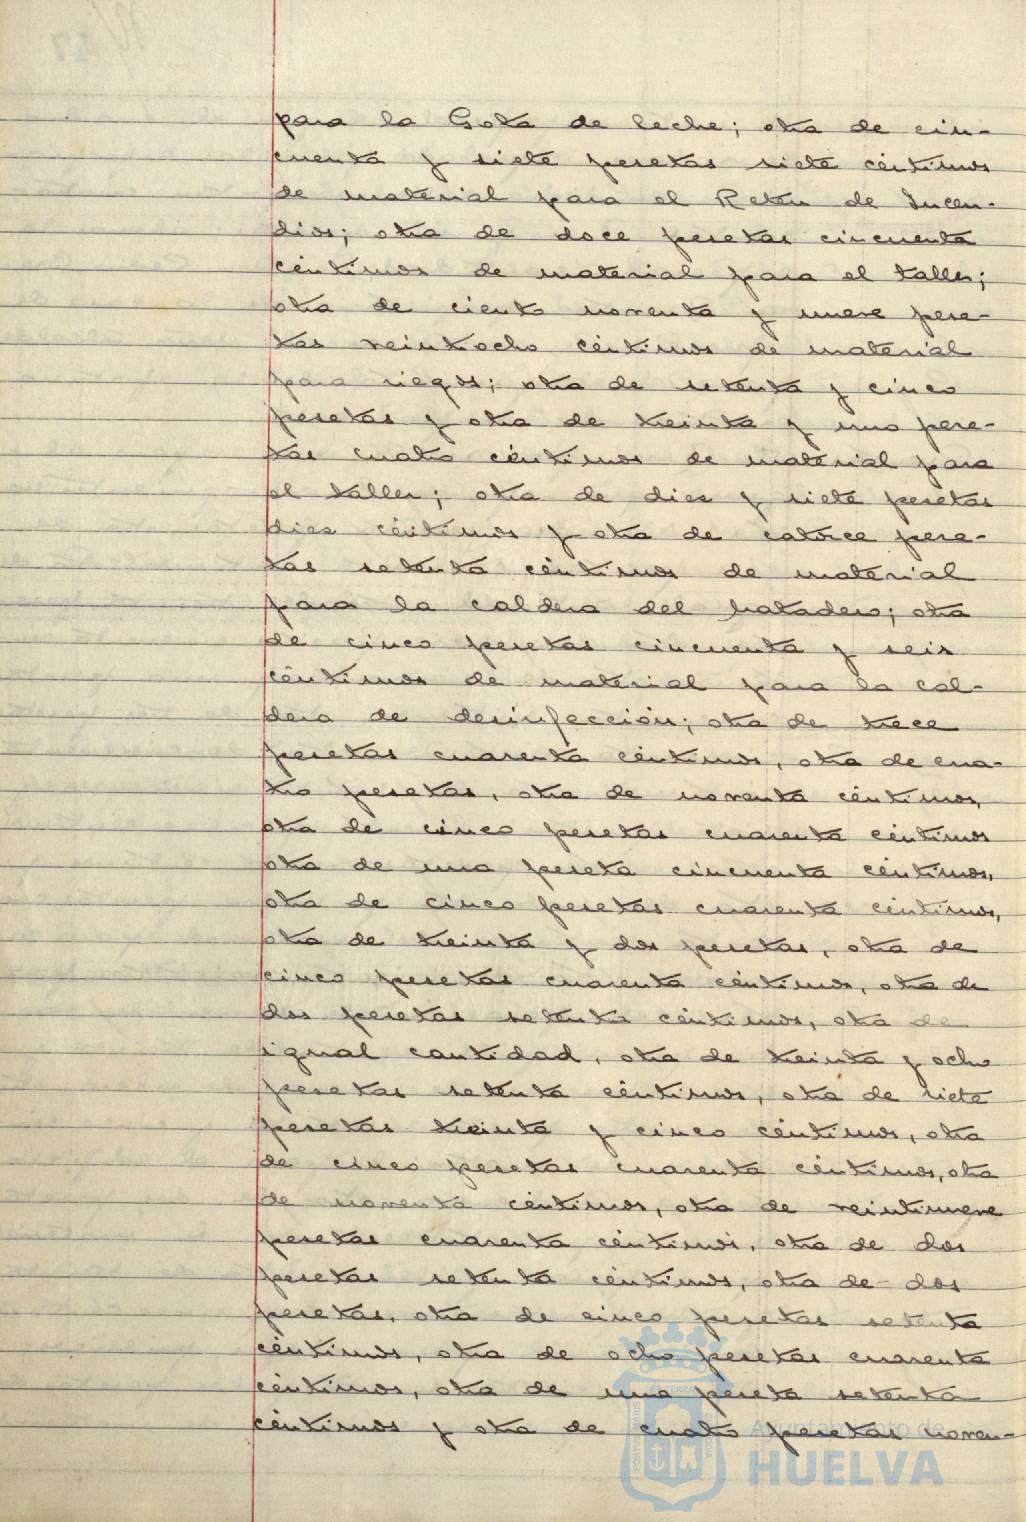 para la Gota de leche; otra de cin-
cuenta y siete pesetas siete céntimos
de material para el Reten de Incen-
dios; otra de doce pesetas cincuenta
céntimos de material para el taller;
otra de ciento noventa y nueve pese-
tas veintiocho céntimos de material
para riegos; otra de setenta y cinco
pesetas y otra de treinta y una pese-
tas cuatro céntimos de material para
el taller; otra de diez y siete pesetas
diez céntimos y otra de catorce pese-
tas setenta céntimos de material
para la caldera del Matadero; otra
de cinco pesetas cincuenta y seis
céntimos de material para la cal-
dera de desinfección; otra de trece
pesetas cuarenta céntimos, otra de cua-
tro pesetas, otra de noventa céntimos,
otra de cinco pesetas cuarenta céntimos
otra de una peseta cincuenta céntimos,
otra de cinco pesetas cuarenta céntimos,
otra de treinta y dos pesetas, otra de
cinco pesetas cuarenta céntimos, otra de
dos pesetas setenta céntimos, otra de
igual cantidad, otra de treinta y ocho
pesetas setenta céntimos, otra de siete
pesetas treinta y cinco céntimos, otra
de cinco pesetas cuarenta céntimos, otra
de noventa céntimos, otra de veintinueve
pesetas cuarenta céntimos, otra de dos
pesetas setenta céntimos, otra de dos
pesetas, otra de cinco pesetas setenta
céntimos, otra de ocho pesetas cuarenta
céntimos, otra de una peseta setenta
céntimos y otra de cuatro pesetas noven-
Ayuntamiento de
HUELVA